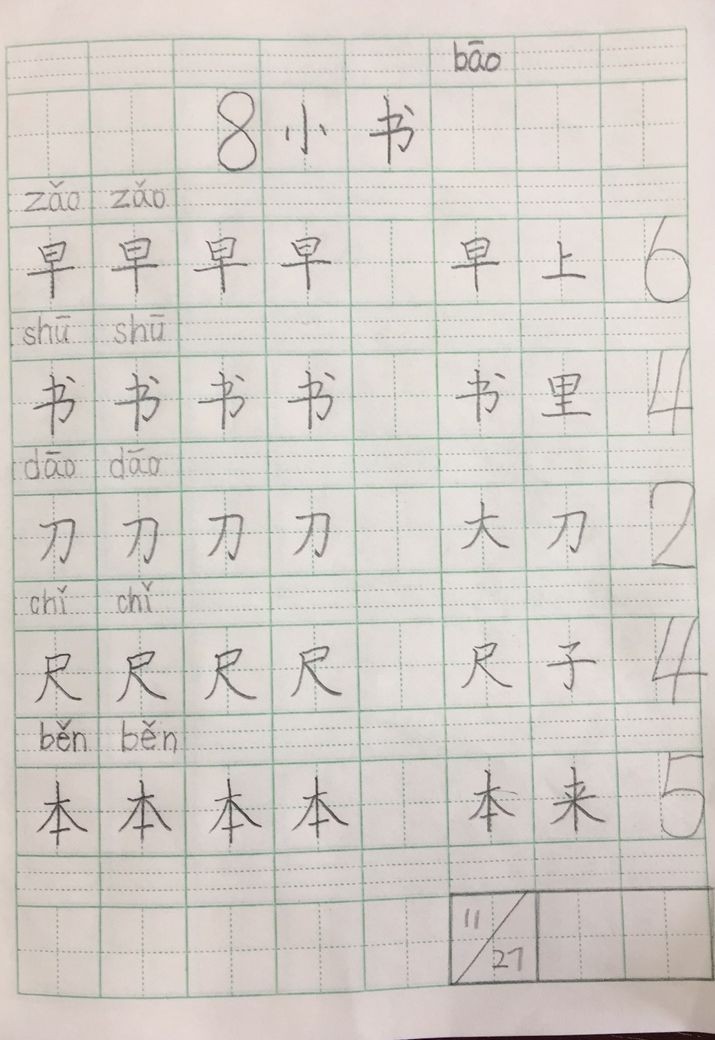 bāo
8 小 书
zǎo zǎo
早 早 早 早 早 上 6
shū shū
书 书 书 书 书 里 4
dāo dāo
刀 刀 刀 刀 大 刀 2
chǐ chǐ
尺 尺 尺 尺 尺 子 4
běn běn
本 本 本 本 本 来 5
11/27